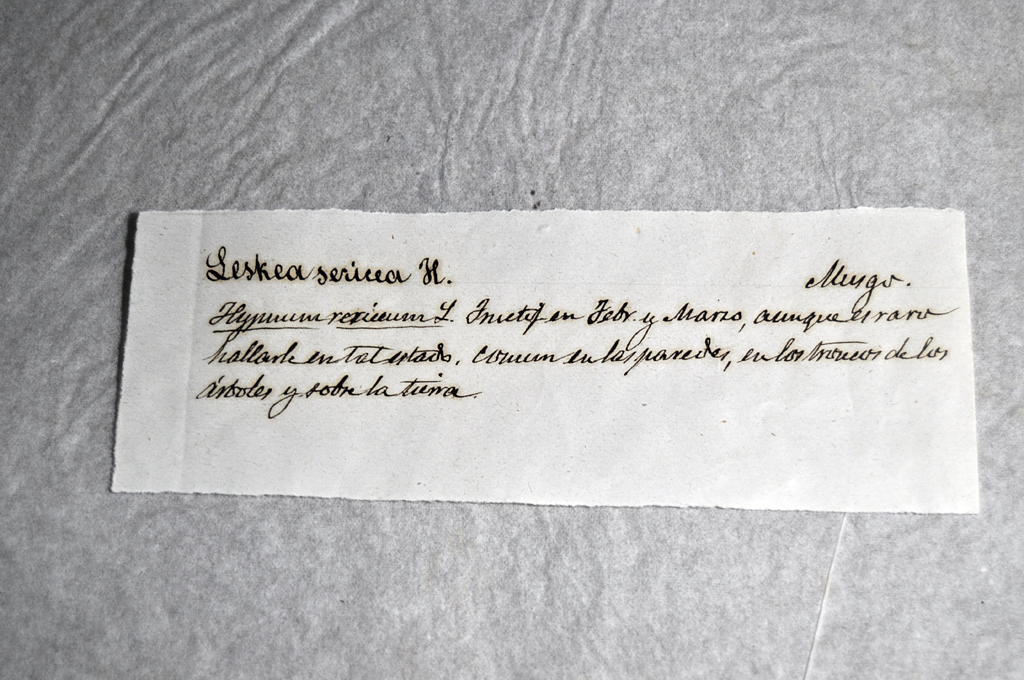 Leskea sericea H. Musgo.
Hypnum sericeum L. Fructif. en Febr. y Marzo, aunque es raro
hallarle en tal estado. Comun en las paredes, en los troncos de los
árboles y sobre la tierra.